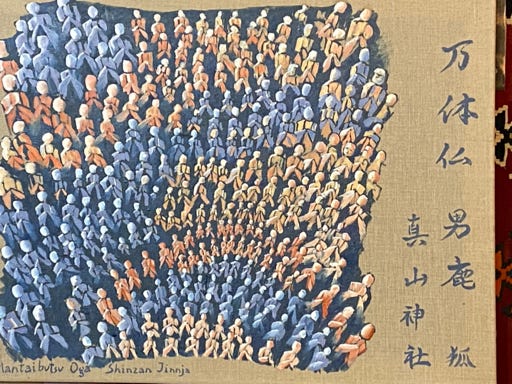 万体仏 男鹿 狐
真山神社
Mantaibutsu Oga Shinzan Jinnja